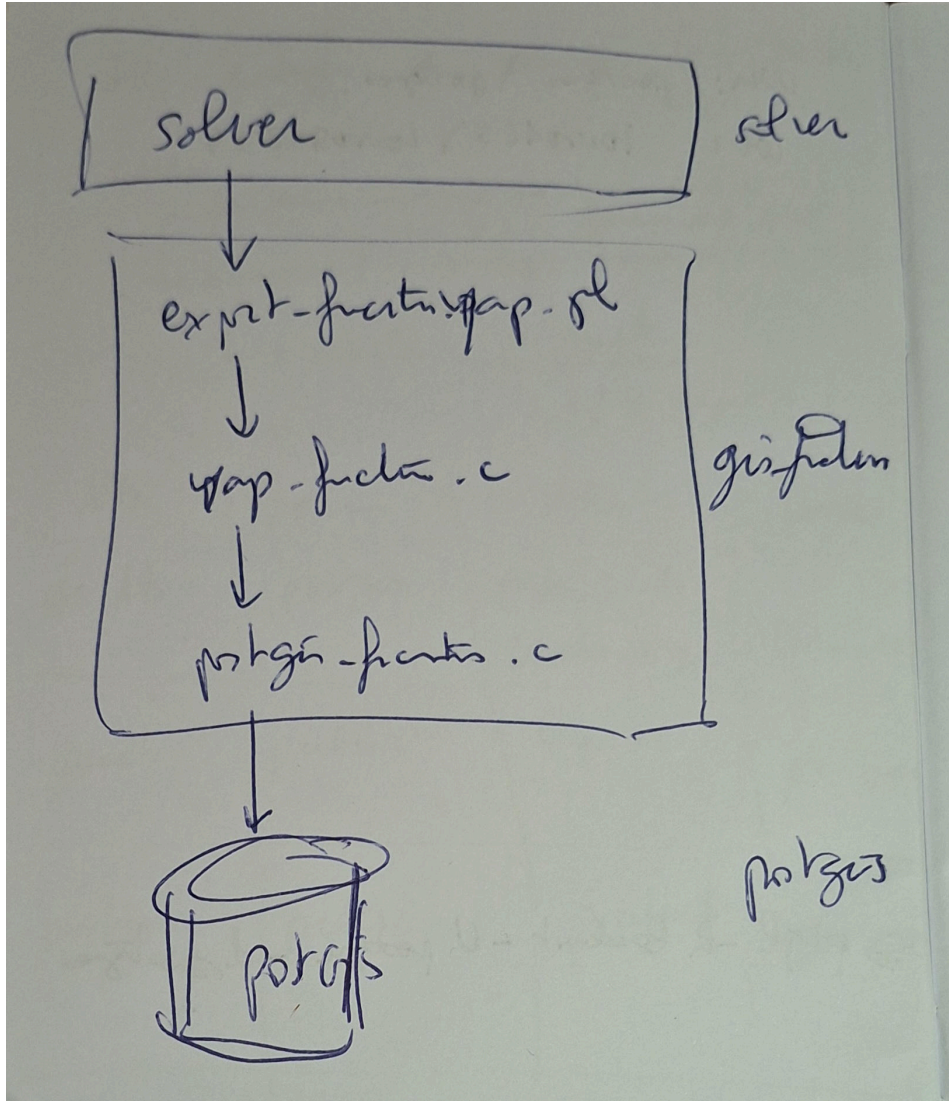 solver solver
export-function-wrap.pl
wrap-function.c
gis-function
postgis-function.c
postgis
postGIS